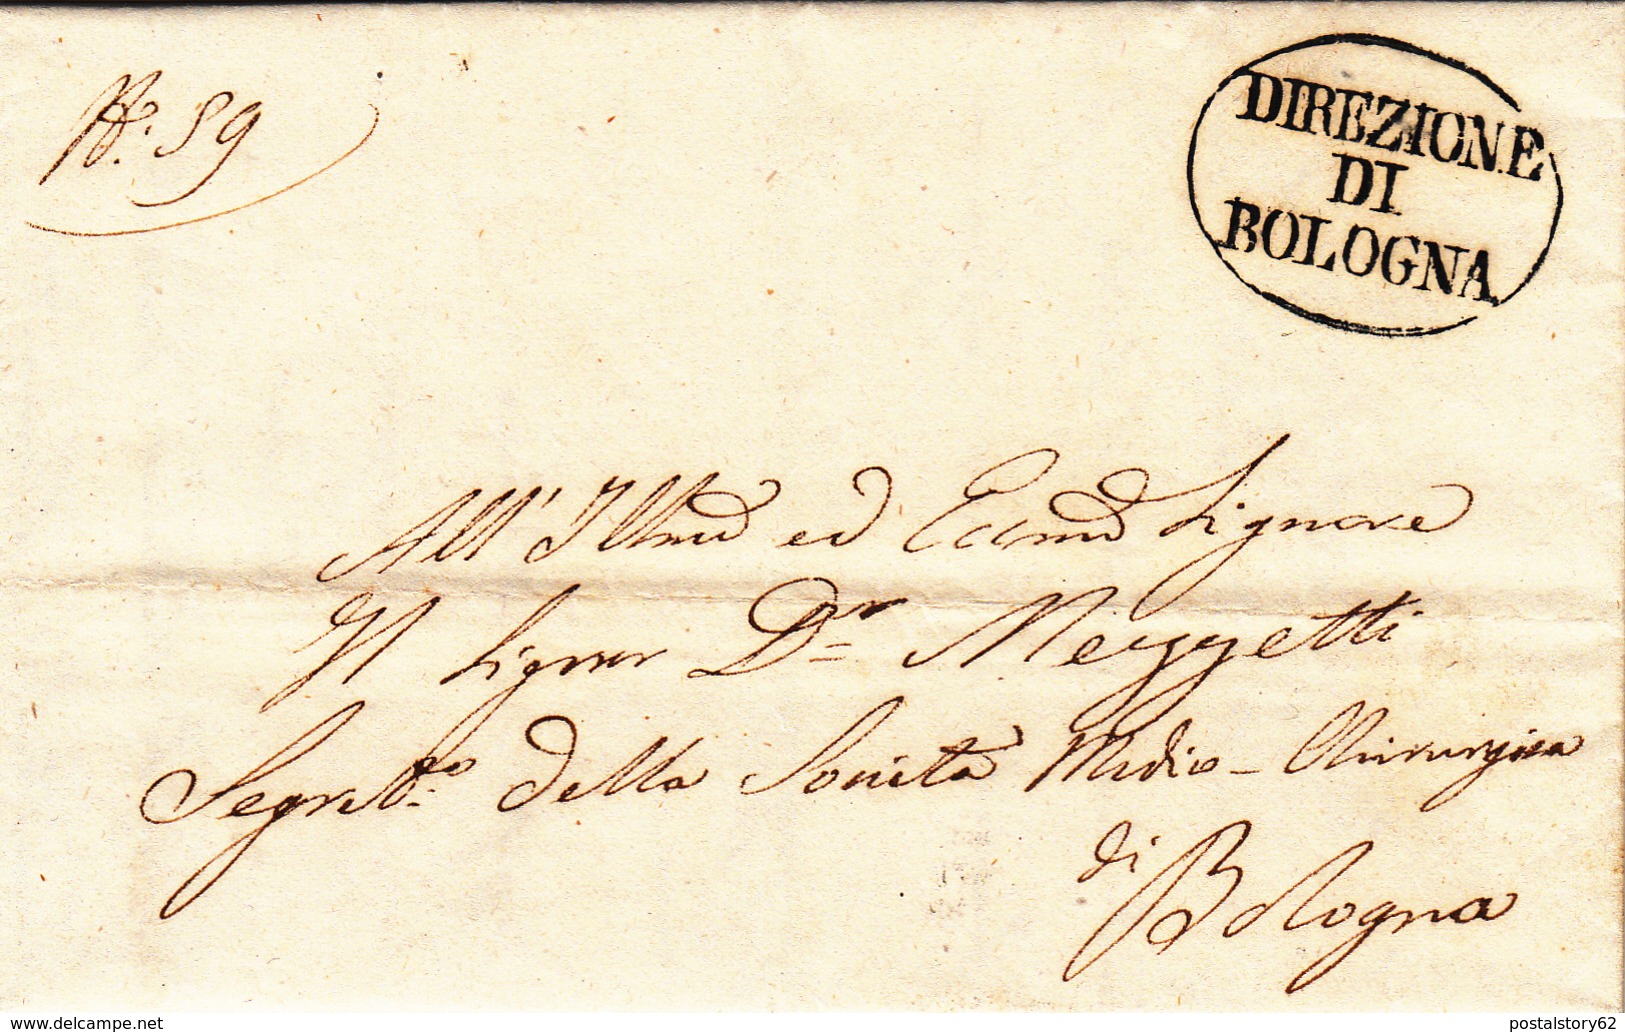 N.° 59
DIREZIONE
DI
BOLOGNA
All' Illmo ed Eccmo Signore
Il Signor Dr. Mezzetti
Segret.o della Società Medico-Chirurgica
di
Bologna
www.delcampe.net
postalstory62